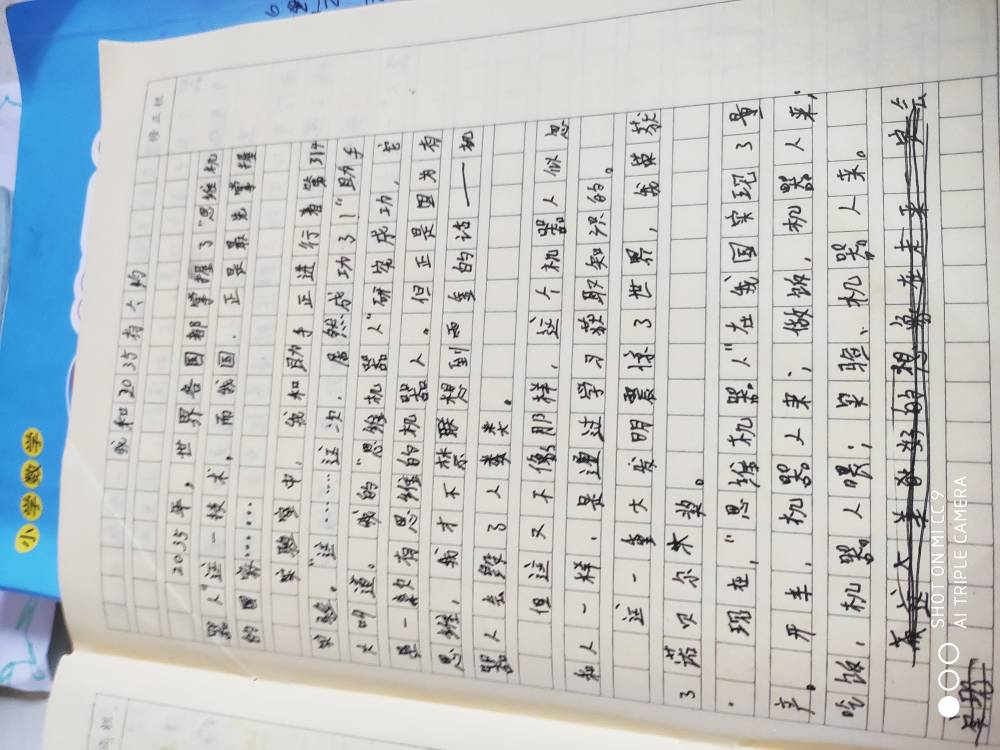 我和2035有个约
2035年，世界各国都掌握了“思维机
器人”这一技术，而我国，正是最先掌握
的国家……
实验室中，我和助手正进行着第314
实验。“这……这次，居然成功了！”助手
大叫道。我的“思维机器人”研究成功，它
是一款有思维的机器人。但正是因为有
思维，我才不禁联想到的话——机
器人去毁了人类。
但这又不像那样，这个机器人似忽
和人一样，是通过学习获取知识的。
这一重大发明震惊了世界，我荣获
了诺贝尔奖。
现在，“思维机器人”在我国实现了量
产。开车，机器人来；做饭，机器人来；
吃饭，机器人喂；实验，机器人来。
修正栏
小学数学
SHOT ON MI CC 9
AI TRIPLE CAMERA